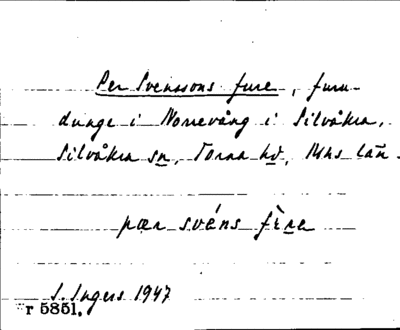 Per Svenssons fure, furu-
dunge i Norrevång i Silvåkra,
Silvåkra sn, Torna hd, Mhs län.
pær svéns fùra
I. Ingers 1947
r 5851.